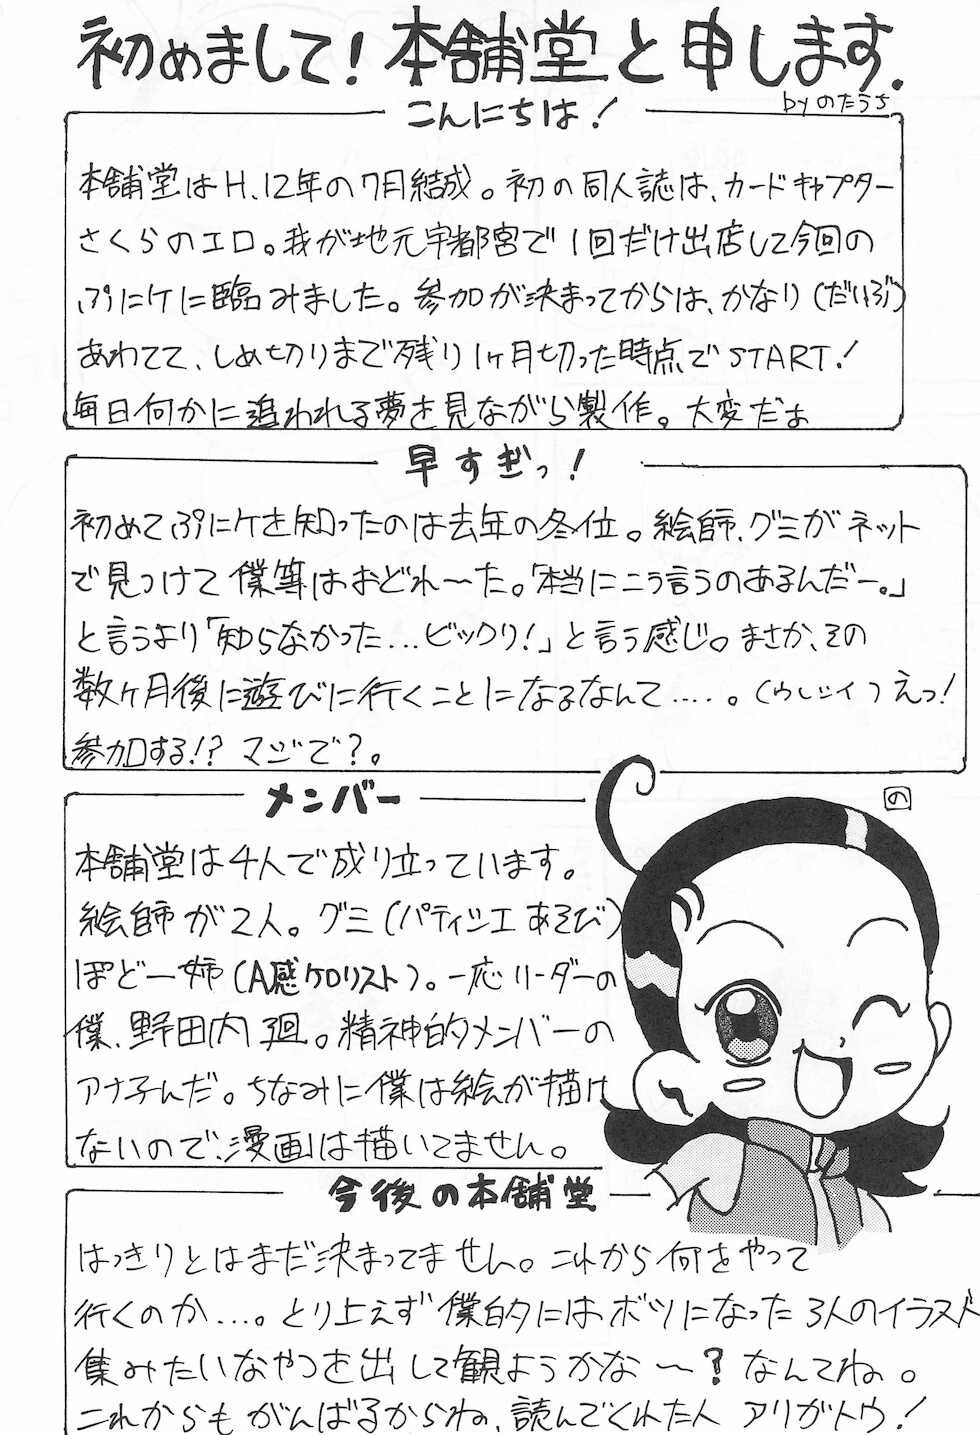 初めまして！本舗堂と申します．
by のたうち
こんにちは！
本舗堂はH.12年の7月結成。初の同人誌は、カードキャプター
さくらのエロ。我が地元宇都宮で1回だけ出店して今回の
ぷにケに臨みました。参加が決まってからは、かなり（だいぶ）
あわてて、しめ切りまで残り1ヶ月切った時点でSTART！
毎日何かに追われる夢を見ながら製作。大変だぁ
早すぎっ！
初めてぷにケを知ったのは去年の冬位。絵師、グミがネット
で見つけて僕等はおどれ～た。「本当にこう言うのあるんだー。」
と言うより「知らなかった…ビックリ！」と言う感じ。まさか、その
数ヶ月後に遊びに行くことになるなんて…‥。（ウレシイ）えっ！
参加する!? マジで？。
メンバー
の
本舗堂は4人で成り立っています。
絵師が2人。グミ（パティシエあそび）
ぽどー姉（A感ケロリスト）。一応リーダーの
僕、野田内廻。精神的メンバーの
アナ子んだ。ちなみに僕は絵が描け
ないので、漫画は描いてません。
今後の本舗堂
はっきりとはまだ決まってません。これから何をやって
行くのか…。とり上えず僕的にはボツになった3人のイラスト
集みたいなやつを出して観ようかな～？なんてね。
これからもがんばるからね、読んでくれた人 アリガトウ！